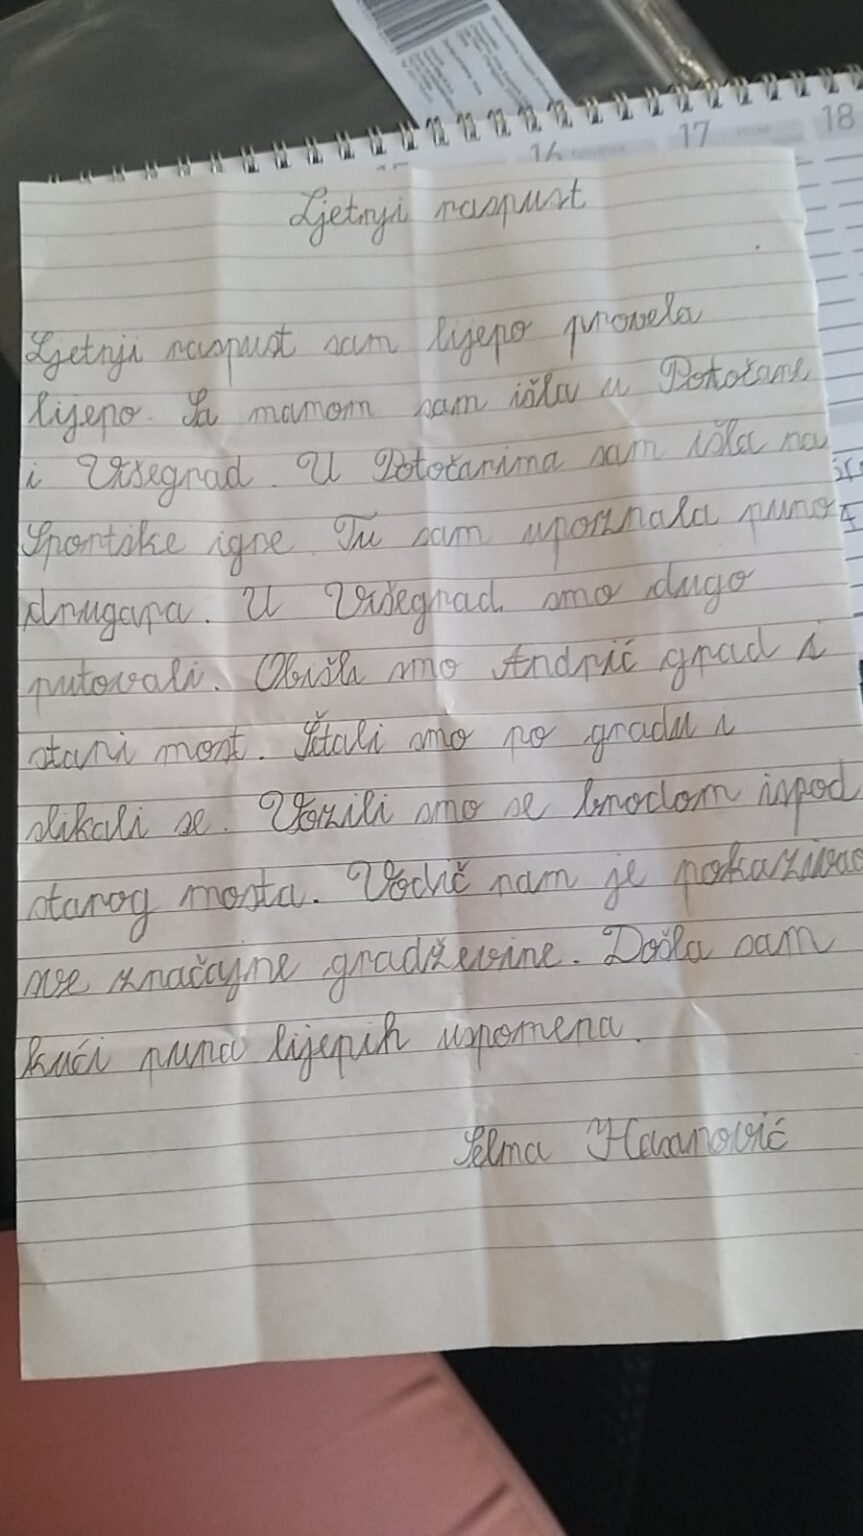 16 17 18
Ljetnji raspust
Ljetnji raspust sam lijepo provela
lijepo. Sa mamom sam išla u Potočane
i Višegrad. U Potočanima sam išla na
Sportske igre. Tu sam upoznala puno
drugara. U Višegrad smo dugo
putovali. Obišli smo Andrić grad i
stari most. Šetali smo po gradu i
slikali se. Vozili smo se brodom ispod
starog mosta. Vodič nam je pokazivao
sve značajne gradževine. Došla sam
kući puna lijepih uspomena.
Selma Hasanović